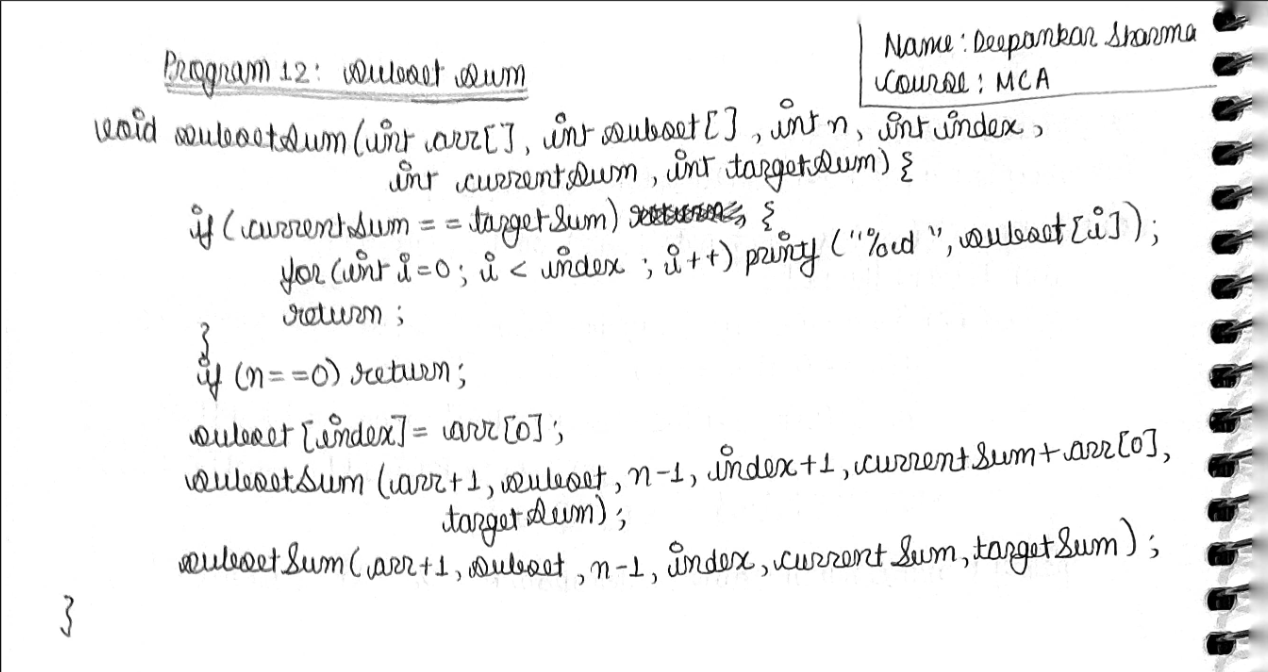 Name: Deepankar Sharma
Course: MCA
Program 12: Subset Sum
void subsetSum(int arr[], int subset[], int n, int index,
int currentSum, int targetSum) {
if (currentSum == targetSum) {
for (int i=0; i < index; i++) printf ("%d ", subset[i]);
return;
}
if (n==0) return;
subset [index] = arr[0];
subsetSum (arr+1, subset, n-1, index+1, currentSum+arr[0],
targetSum);
subsetSum(arr+1, subset, n-1, index, currentSum, targetSum);
}